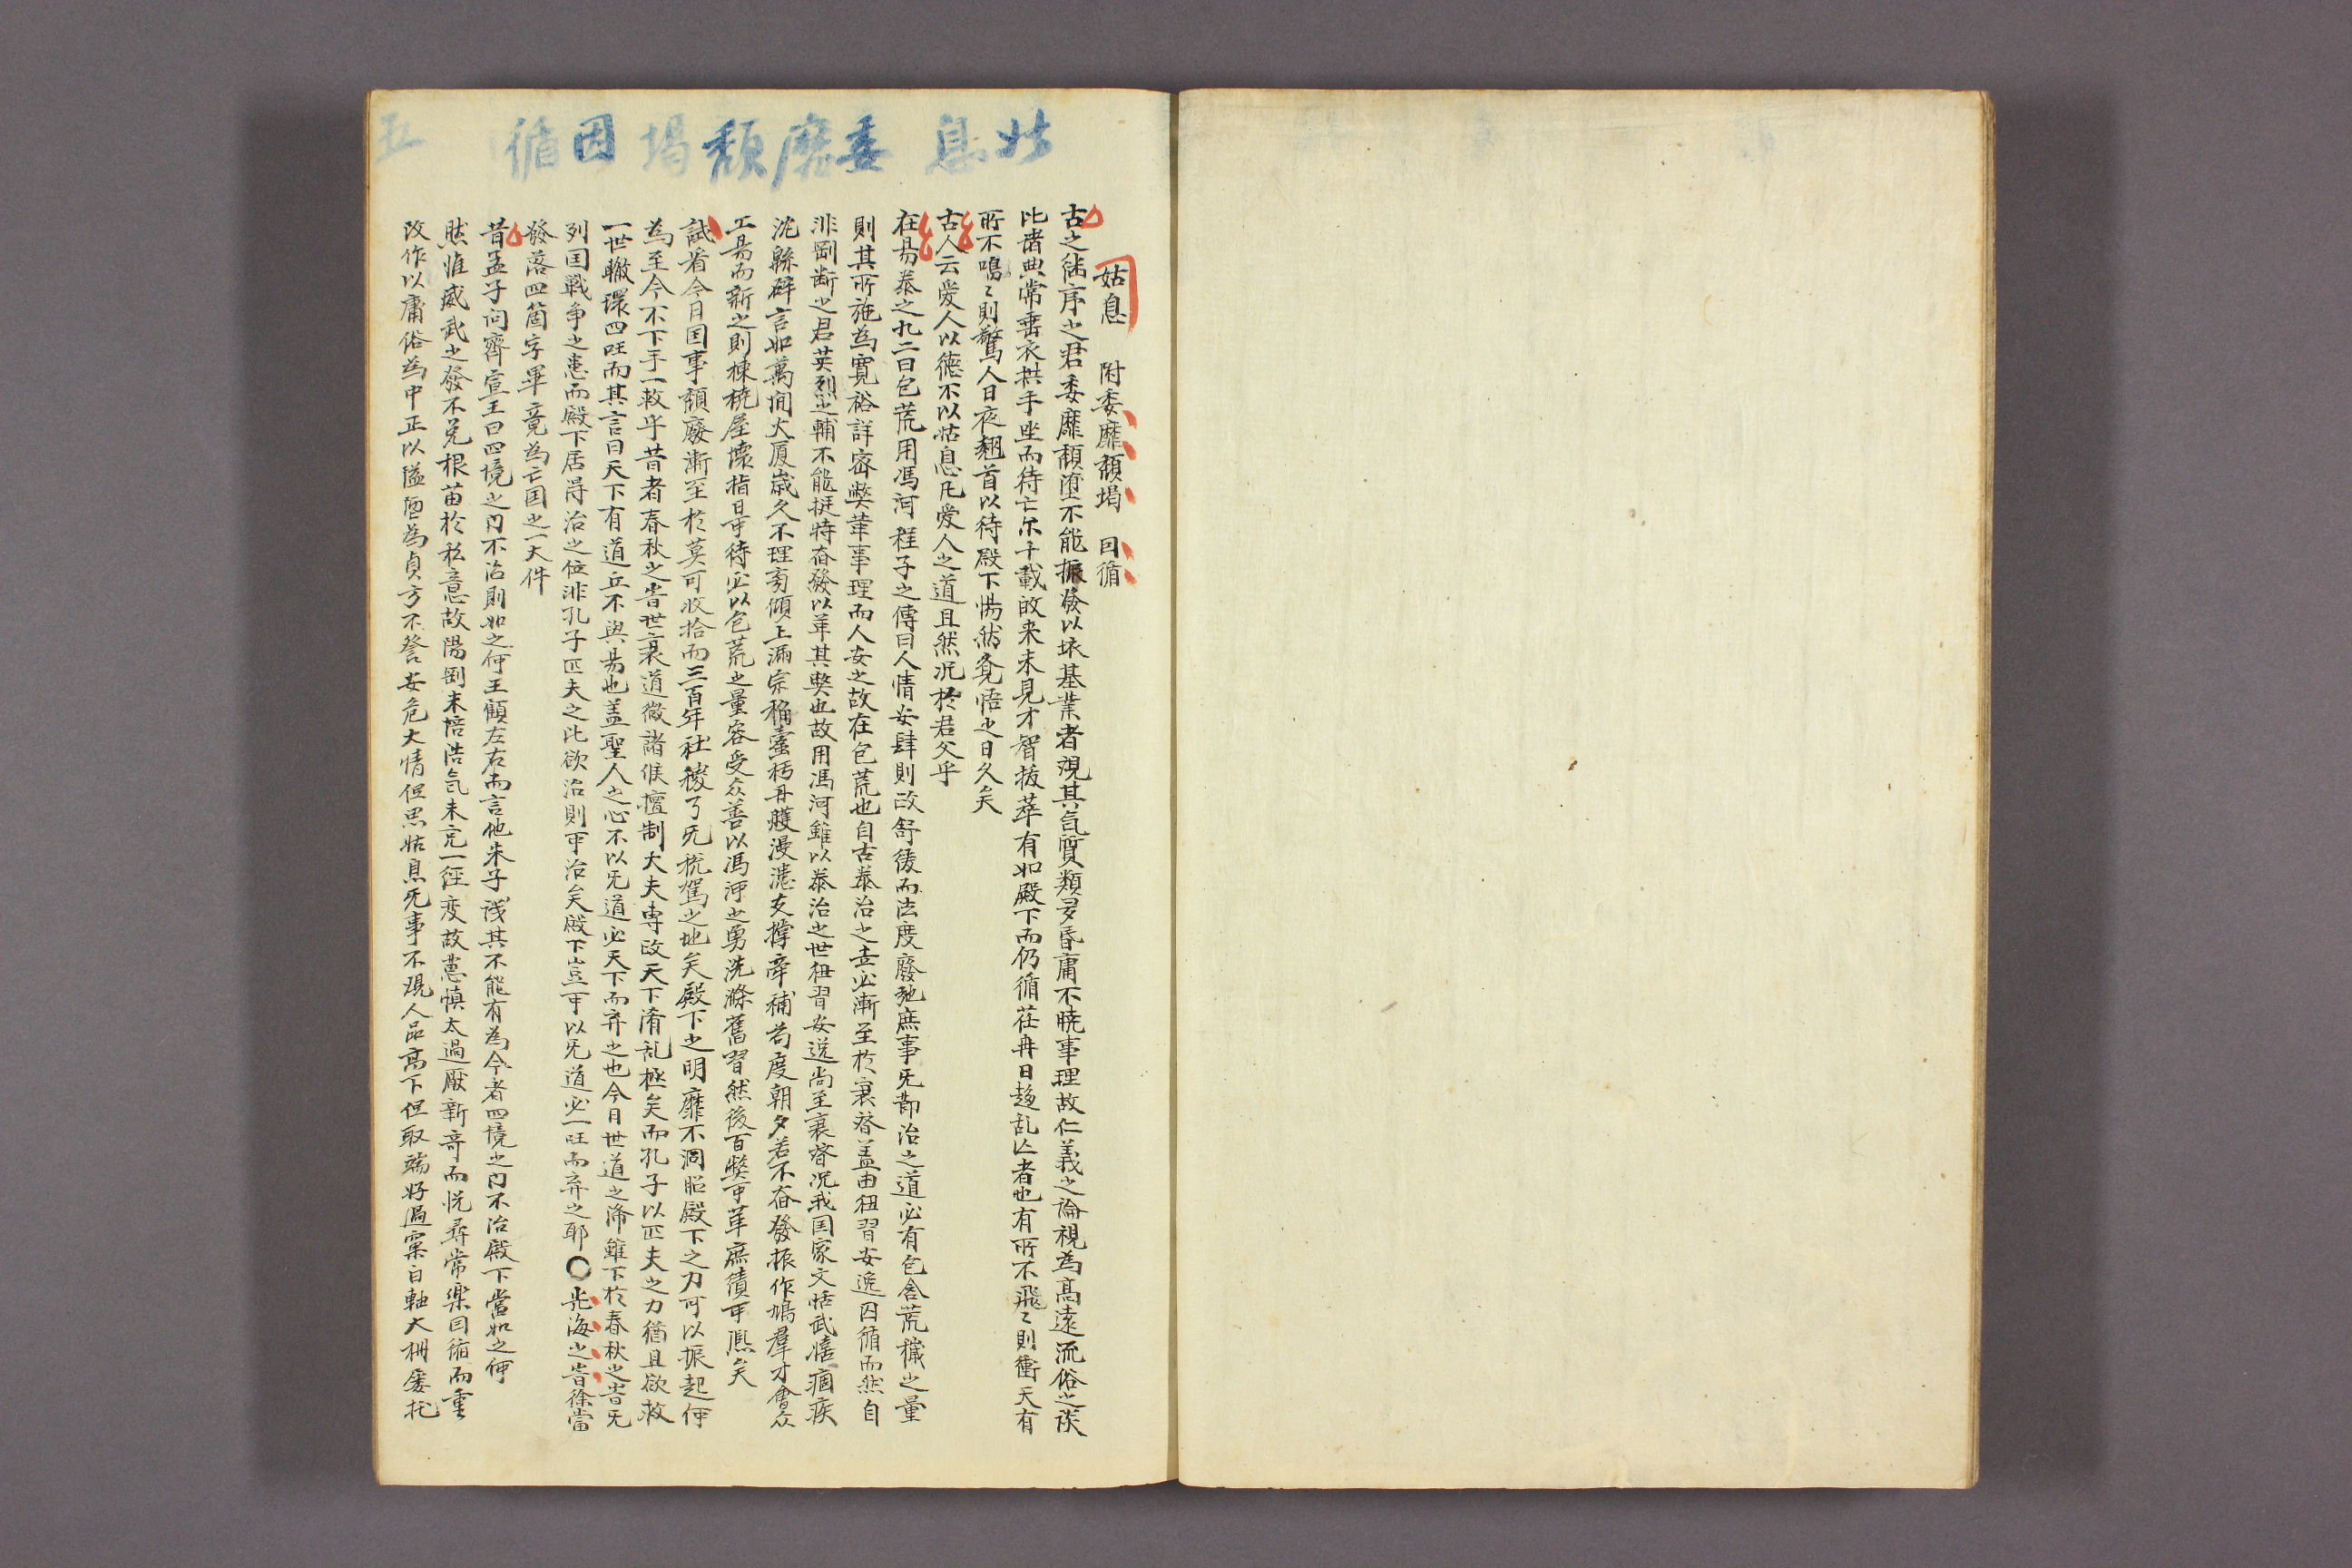 姑息委靡頹塌因循 五
姑息 附委靡頹塌 因循
古之継序之君委靡頹墮不能振發以坠基業者視其氣質類多昏庸不曉事理故仁義之論視為髙遠流俗之談
比諸典常垂衣拱手坐而待亡尔千載啟来未見才智拔萃有如殿下而仍循荏苒日趍乱亡者也有所不飛〻則衝天有
所不鳴〻則驚人日夜翹首以待殿下惕然覺悟之日久矣
古人云愛人以德不以姑息凡愛人之道且然况於君父乎
在易泰之九二曰包荒用馮河 程子之傳曰人情安肆則政舒緩而法度廢弛庶事无莭治之道必有包含荒穢之量
則其所施為寛裕詳密獘革事理而人安之故在包荒也自古泰治之世必漸至於衰替盖由狃習安逸因循而然自
非剛断之君英烈之輔不能挺特奋發以革其獘也故用馮河雖以泰治之世狃習安逸尚至衰替况我国家文恬武憘痼疾
沈緜辟言如萬间大厦歲久不理旁傾上漏宗桷蠹朽丹雘漫漶支撐牽補苟度朝夕若不奋發振作鳩羣才會众
工易而新之則棟橈屋壞指日可待必以包荒之量容受众善以馮河之勇洗滌舊習然後百獘可革庶績可熙矣
試看今日国事頹廢漸至於莫可收拾而三百年社稷了无梲駕之地矣殿下之明靡不洞昭殿下之力可以振起何
為至今不下手一救乎昔者春秋之昔世衰道微諸候擅制大夫専政天下淆乱極矣而孔子以匹夫之力猶且欲救
一世轍環四旺而其言曰天下有道丘不與易也盖聖人之心不以无道必天下而弃之也今日世道之渧雖下於春秋之昔无
列国戦争之患而殿下居淂治之位非孔子匹夫之比欲治則可治矣殿下豈可以无道必一旺而弃之耶〇光海之昔徐當
發落四箇字畢竟為亡国之一大件
昔孟子问齊宣王曰四境之内不治則如之何王顧左右而言他朱子讥其不能有為今者四境之内不治殿下當如之何
然惟威武之發不免根苗於私意故陽剛未培浩氣未克一徑変故蒽慎太過厭新奇而悦尋常楽因循而重
改作以庸俗為中正以隘陋為貞方不詧安危大情但思姑息无事不現人品高下但取端好過窠臼軸大柵屡托